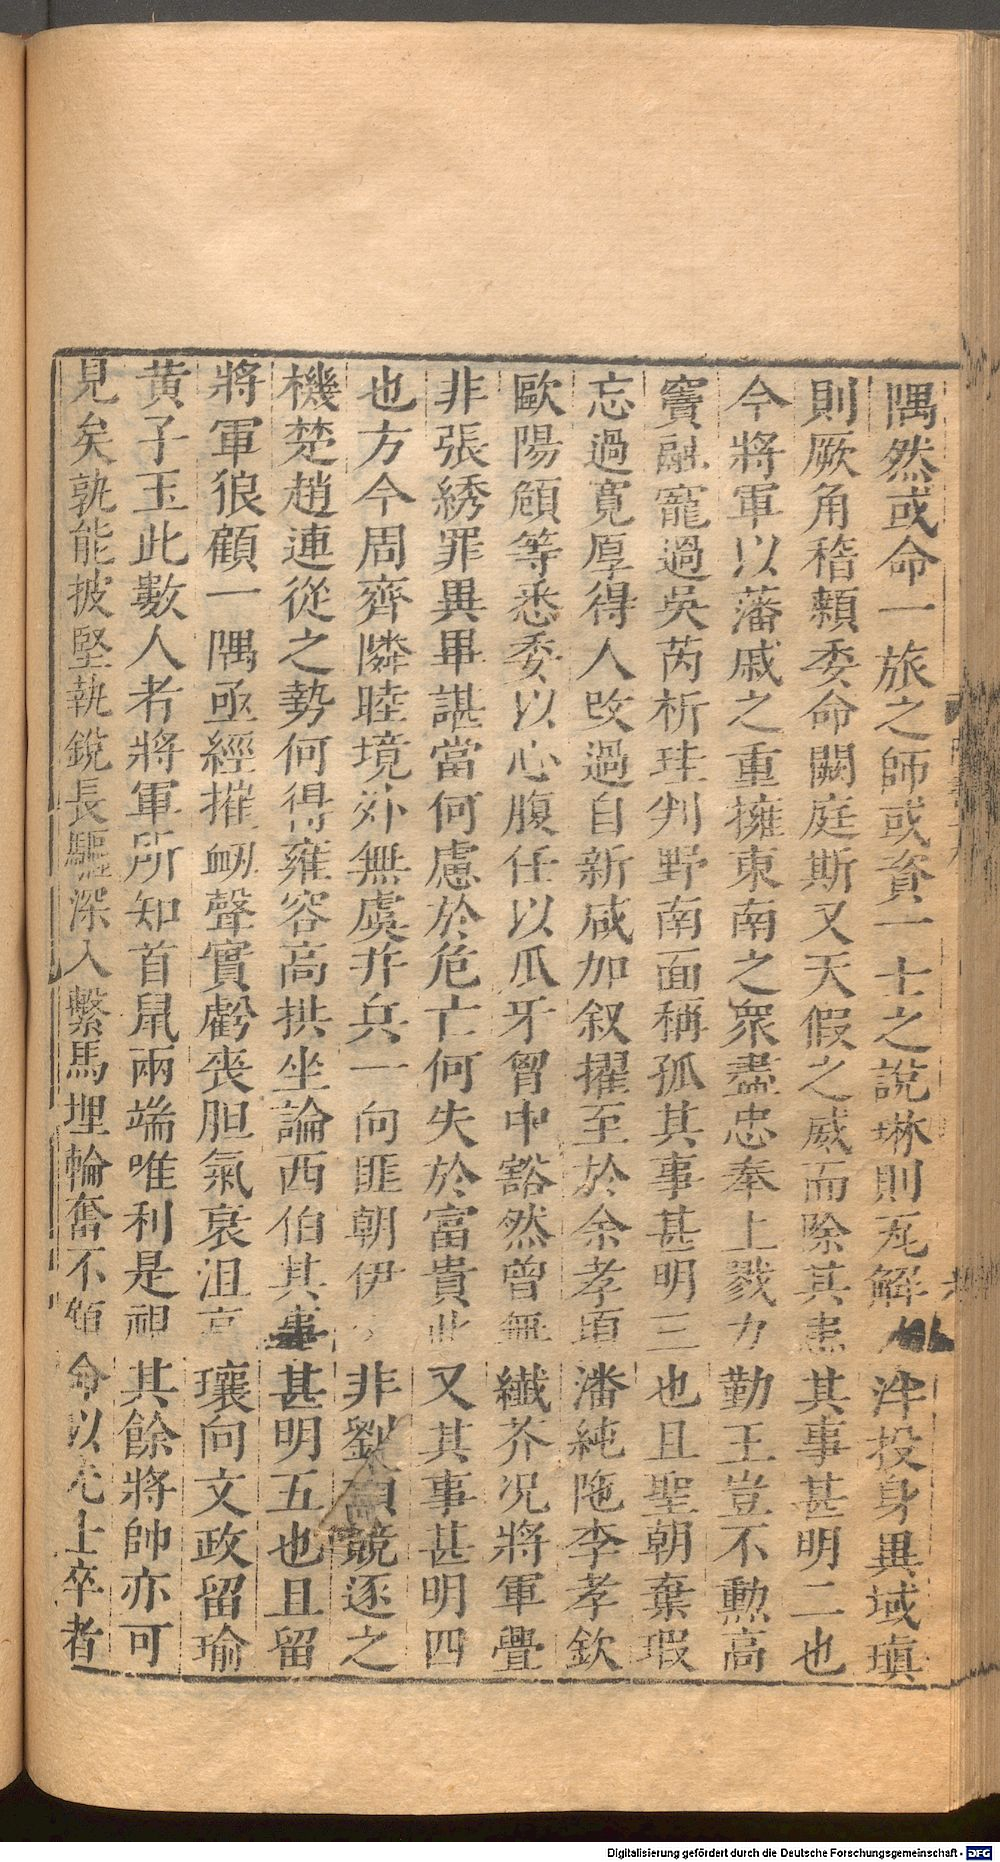 隅然或命一旅之師或資一士之說琳則瓦解 泮投身異域瑱
則厥角稽顙委命闕庭斯又天假之威而除其患其事甚明二也
今將軍以藩戚之重擁東南之衆盡忠奉上戮力勤王豈不勲高
竇融寵過吳芮析珪判野南面稱孤其事甚明三也且聖朝棄瑕
忘過寛厚得人改過自新咸加叙擢至於余孝頃潘純陁李孝欽
歐陽頠等悉委以心腹任以爪牙胷中豁然曽無纎芥况將軍舋
非張綉罪異畢諶當何慮於危亡何失於富貴此又其事甚明四
也方今周齊隣睦境外無虞并兵一向匪朝伊 非劉項競逐之
機楚趙連從之勢何得雍容高拱坐論西伯其事甚明五也且留
將軍狼顧一隅亟經摧衂聲實虧喪胆氣衰沮髙瓌向文政留瑜
黃子玉此數人者將軍所知首鼠兩端唯利是視其餘將帥亦可
見矣孰能披堅執銳長驅深入繫馬埋輪奮不顧命以先士卒者
Digitalisierung gefördert durch die Deutsche Forschungsgemeinschaft - DFG